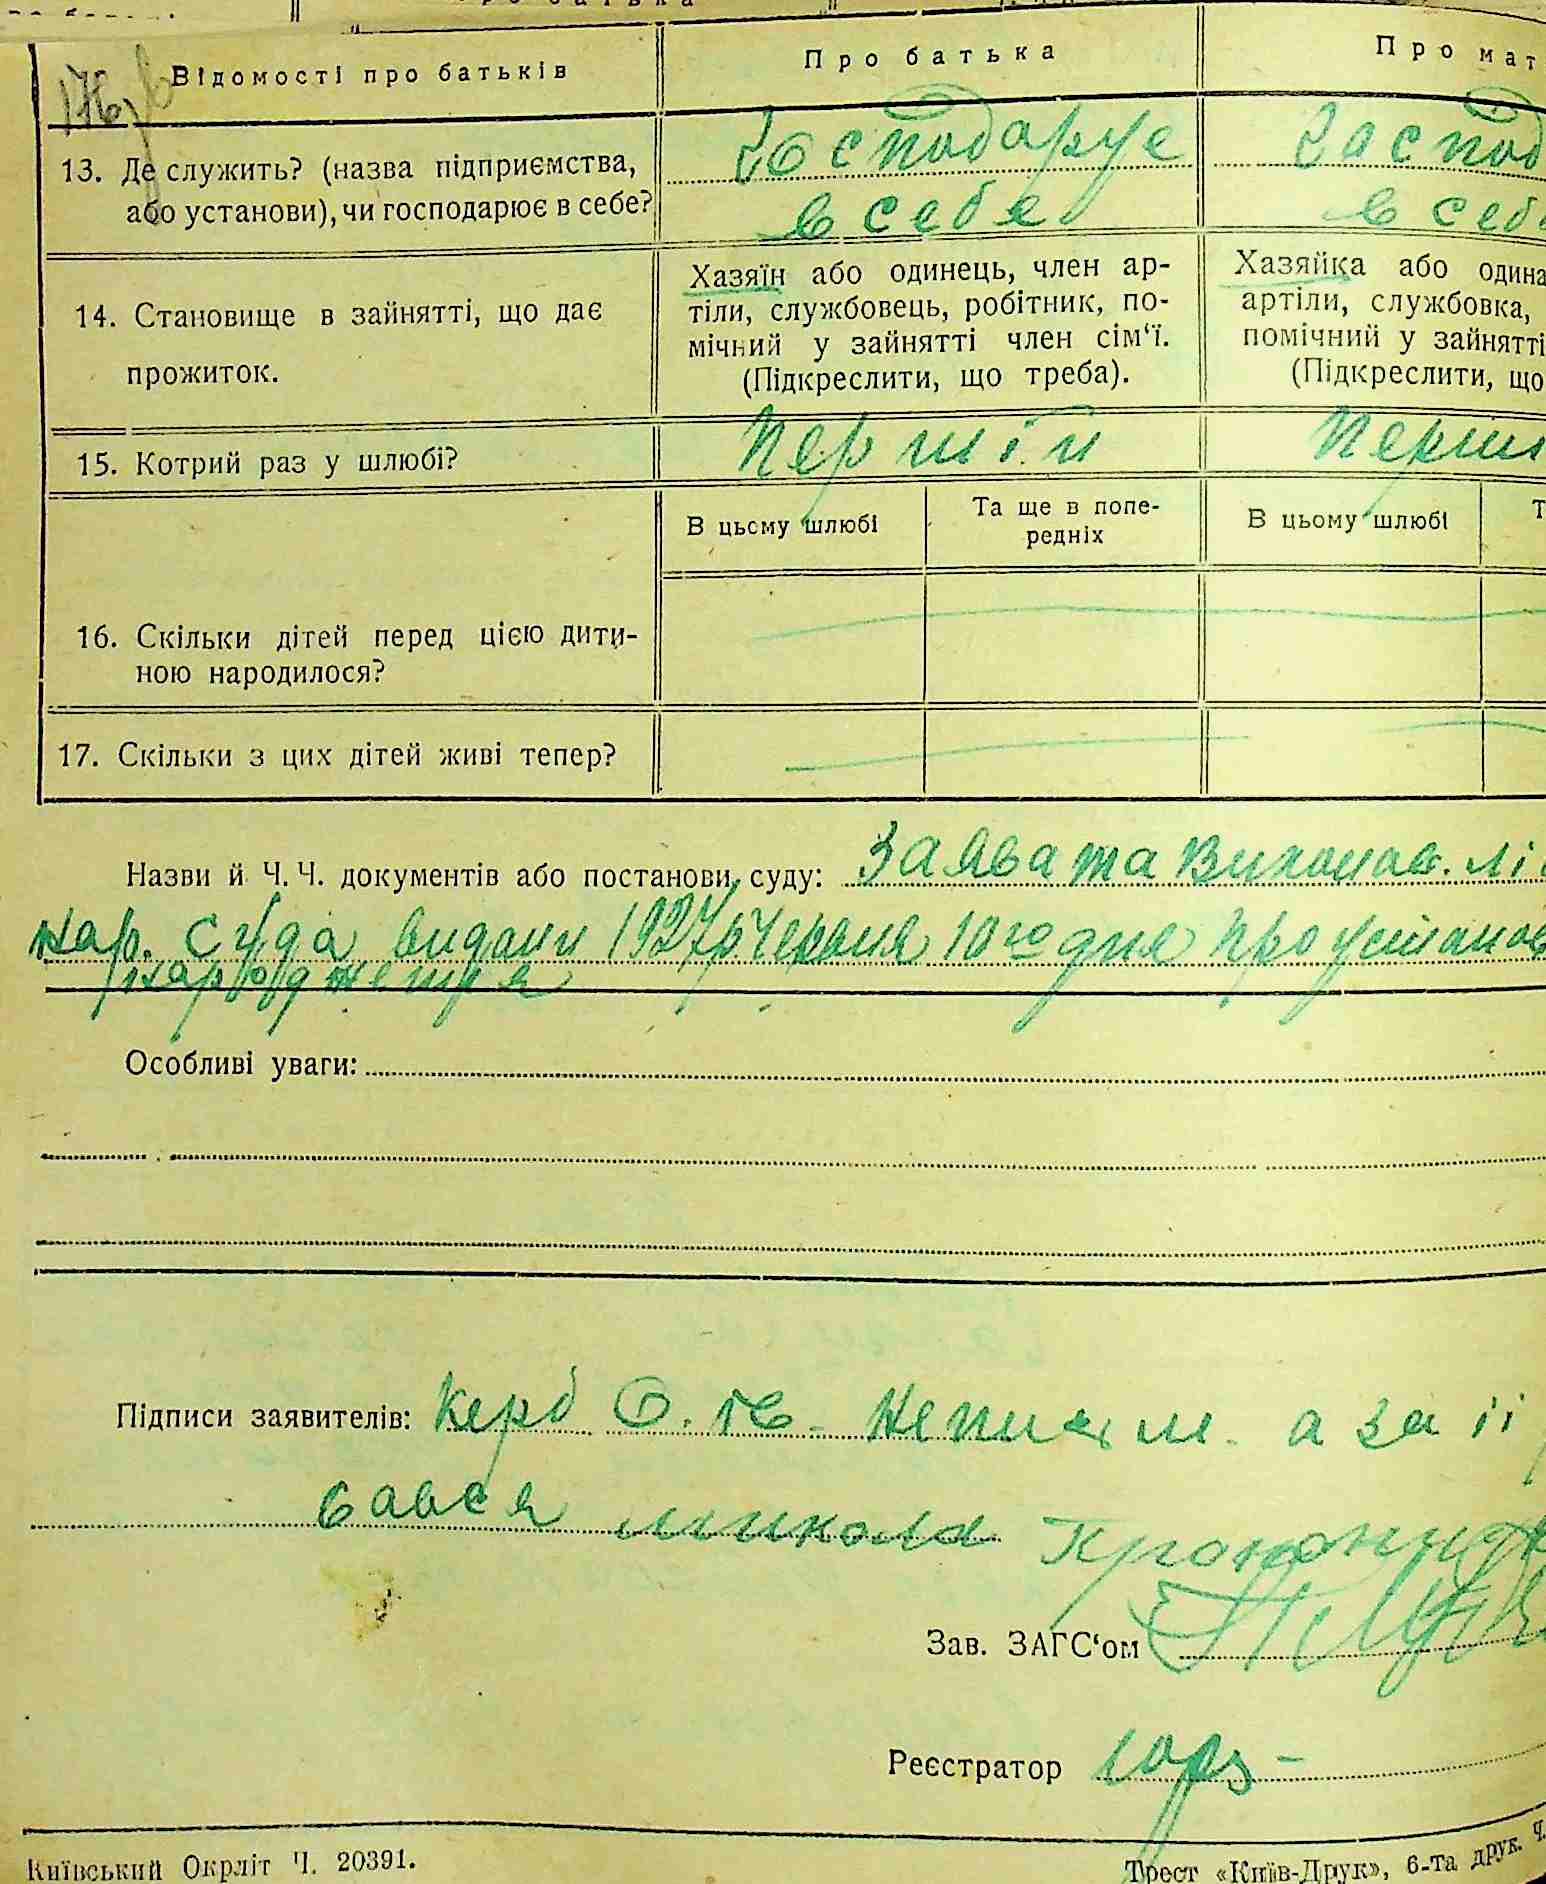 Відомості про батьків
Про батька
Про мат
13. Де служить? (назва підприємства,
або установи), чи господарює в себе?
Господарує
в себе
Госпо
в себ
14. Становище в зайнятті, що дає
прожиток.
Хазяїн або одинець, член ар-
тіли, службовець, робітник, по-
мічний у зайнятті член сім‘ї.
(Підкреслити, що треба).
Хазяйка або одина
артіли, службовка,
помічний у зайнятті
(Підкреслити, що
15. Котрий раз у шлюбі?
Перший
Перши
В цьому шлюбі
Та ще в попе-
редніх
В цьому шлюбі
Т
16. Скільки дітей перед цією дити-
ною народилося?
17. Скільки з цих дітей живі тепер?
Назви й Ч. Ч. документів або постанови суду: Заява та Виконав. лі
нар. Суда видани 1927р. Червня 10го дня про установ
народження
Особливі уваги:
Підписи заявителів: Керб О. Неписьм. а за її
вався Микола
Зав. ЗАГС‘ом
Реєстратор
Київський Окрліт Ч. 20391.
Трест «Київ-Друк», 6-та друк. Ч.